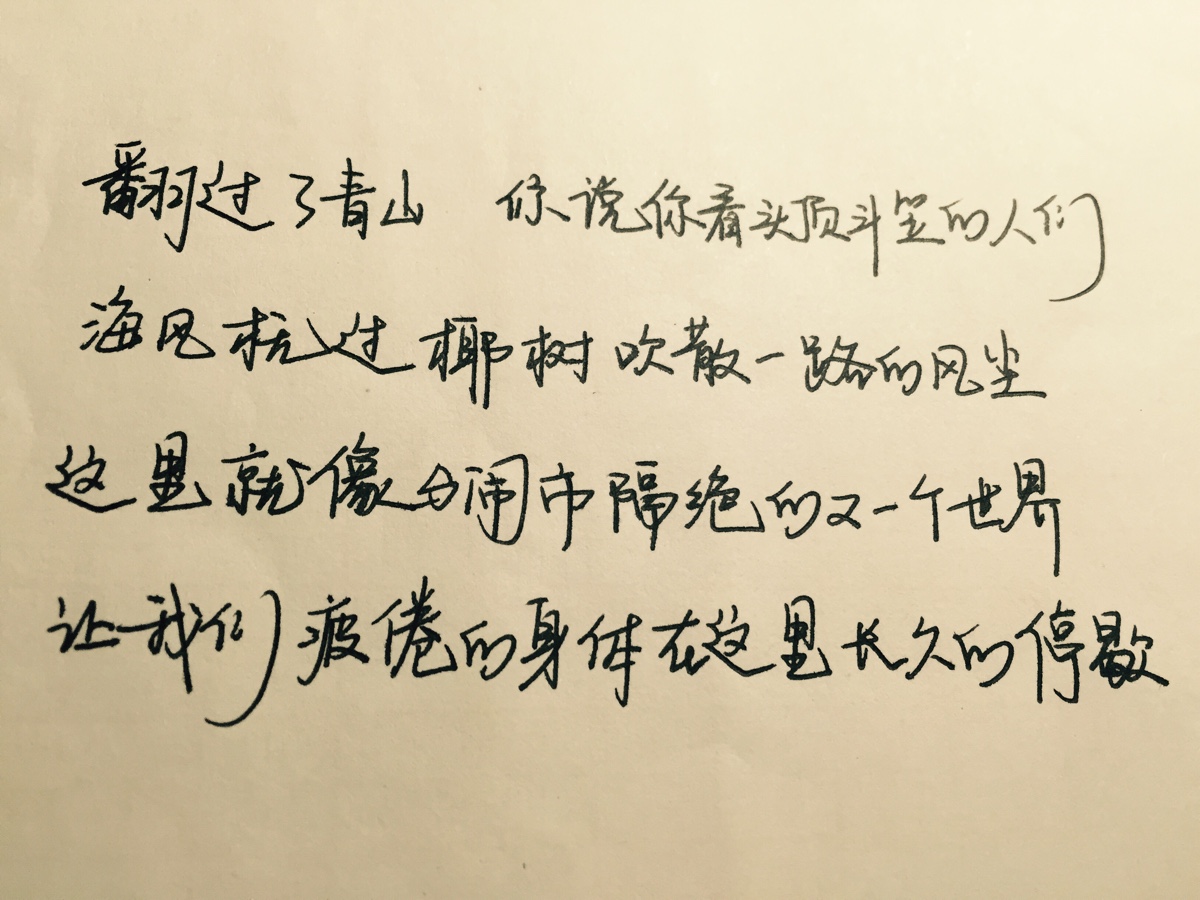 翻过了青山 你说你看头顶斗笠的人们
海风抚过椰树吹散一路的风尘
这里就像与闹市隔绝的又一个世界
让我们疲倦的身体在这里长久的停歇